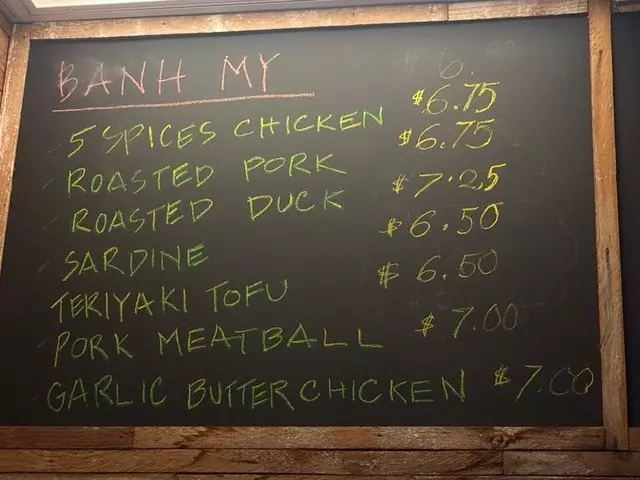 BANH MY
5 SPICES CHICKEN $6.75
ROASTED PORK $6.75
ROASTED DUCK $7.25
SARDINE $6.50
TERIYAKI TOFU $6.50
PORK MEATBALL $7.00
GARLIC BUTTER CHICKEN $7.00